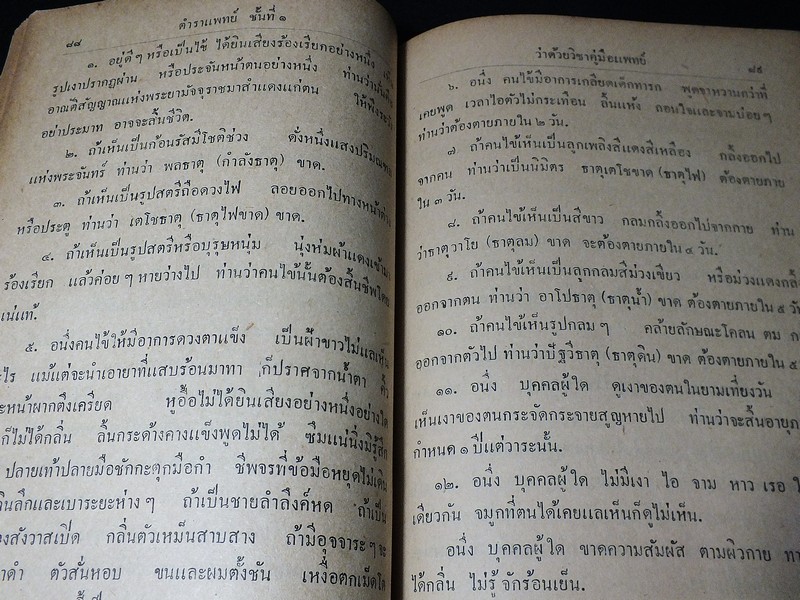 ๘๘
ตำราแพทย์ ชั้นที่ ๑
๑. อยู่ดีๆ หรือเป็นไข้ ได้ยินเสียงร้องเรียกอย่างหนึ่ง
รูปเงาปรากฏผ่าน หรือประจันหน้าตนอย่างหนึ่ง ท่านว่านั่นเป็น
อาณัติสัญญาณแห่งพระยามัจจุราชมาสำแดงแก่ตน ให้พึงระวัง
อย่าประมาท อาจจะสิ้นชีวิต.
๒. ถ้าเห็นเป็นก้อนรัสมีโชติช่วง ดั่งหนึ่งแสงปริมณฑล
แห่งพระจันทร์ ท่านว่า พลธาตุ (กำลังธาตุ) ขาด.
๓. ถ้าเห็นเป็นรูปสตรีถือดวงไฟ ลอยออกไปทางหน้าต่าง
หรือประตู ท่านว่า เตโชธาตุ (ธาตุไฟขาด) ขาด.
๔. ถ้าเห็นเป็นรูปสตรีหรือบุรุษหนุ่ม นุ่งห่มผ้าแดงเข้ามา
ร้องเรียก แล้วค่อยๆ หายว่างไป ท่านว่าคนไข้นั้นต้องสิ้นชีพโดย
แน่แท้.
๕. อนึ่งคนไข้ให้มีอาการดวงตาแข็ง เป็นฝ้าขาวไม่แลเห็น
อะไร แม้แต่จะนำเอายาที่แสบร้อนมาทา ก็ปราศจากน้ำตา คิ้ว
และหน้าผากตึงเครียด หูอื้อไม่ได้ยินเสียงอย่างหนึ่งอย่างใด
ก็ไม่ได้กลิ่น ลิ้นกระด้างคางแข็งพูดไม่ได้ ซึมแน่นิ่งมิรู้สึก
ปลายเท้าปลายมือชักกะตุกมือกำ ชีพจรที่ข้อมือหยุดไม่เดิน
เดินลึกและเบาระยะห่างๆ ถ้าเป็นชายลำลึงค์หด ถ้าเป็น
สังวาสเปิด กลิ่นตัวเหม็นสาบสาง ถ้ามีอุจจาระๆ จะ
ดำ ตัวสั่นหอบ ขนและผมตั้งชัน เหงื่อตกเม็ดใด
ว่าด้วยวิชาคู่มือแพทย์
๘๙
๖. อนึ่ง คนไข้มีอาการเกลียดเด็กทารก พูดจาหวานกว่าที่
เคยพูด เวลาไอตัวไม่กระเทือน ลิ้นแห้ง ถอนใจและจามบ่อยๆ
ท่านว่าต้องตายภายใน ๒ วัน.
๗ ถ้าคนไข้เห็นเป็นลูกเพลิงสีแดงสีเหลือง กลิ้งออกไป
จากคน ท่านว่าเป็นนิมิตร ธาตุเตโชขาด (ธาตุไฟ) ต้องตายภาย
ใน ๓ วัน.
๘. ถ้าคนไข้เห็นเป็นสีขาว กลมกลิ้งออกไปจากกาย ท่าน
ว่าธาตุวาโย (ธาตุลม) ขาด จะต้องตายภายใน ๔ วัน.
๙. ถ้าคนไข้เห็นเป็นลูกกลมสีม่วงเขียว หรือม่วงแดงกลิ้
ออกจากตน ท่านว่า อาโปธาตุ (ธาตุน้ำ) ขาด ต้องตายภายใน ๕ วัน
๑๐. ถ้าคนไข้เห็นรูปกลมๆ คล้ายลักษณะโคลน ตม ก
ออกจากตัวไป ท่านว่าปัฐวีธาตุ (ธาตุดิน) ขาด ต้องตายภายใน ๕
๑๑. อนึ่ง บุคคลผู้ใด ดูเงาของตนในยามเที่ยงวัน
เห็นเงาของตนกระจัดกระจายสูญหายไป ท่านว่าจะสิ้นอายุภ
กำหนด ๑ ปีแต่วาระนั้น.
๑๒. อนึ่ง บุคคลผู้ใด ไม่มีเงา ไอ จาม หาว เรอ ใ
เดียวกัน จมูกที่ตนได้เคยแลเห็นก็ดูไม่เห็น.
อนึ่ง บุคคลผู้ใด ขาดความสัมผัส ตามผิวกาย ทา
ได้กลิ่น ไม่รู้จักร้อนเย็น.